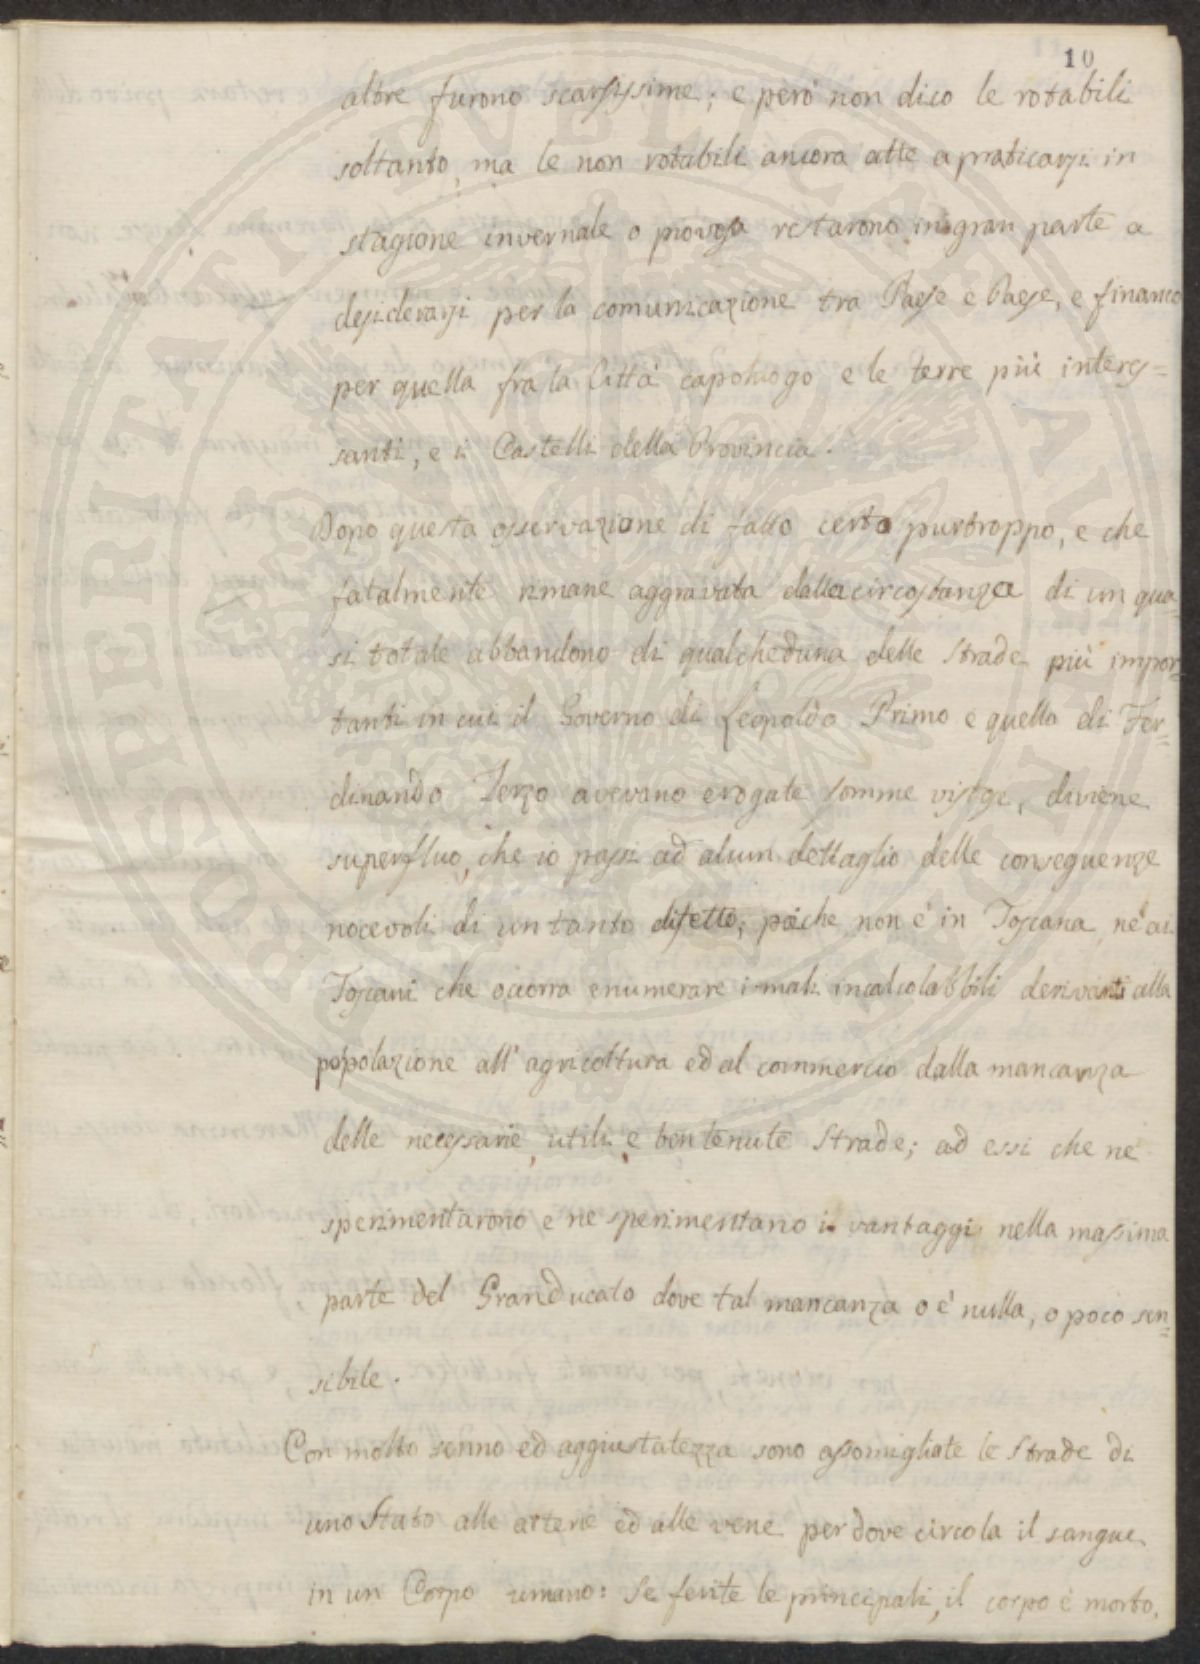 10
altre furono scarsissime; e però non dico le rotabili
soltanto, ma le non rotabili ancora atte a praticarsi in
stagione invernale o piovosa restarono in gran parte a
desiderarsi per la comunicazione tra Paese e Paese, e financo
per quella fra la Città capoluogo e le terre più interes=
santi, e i Castelli della Provincia.
Dopo questa osservazione di fatto certo purtroppo, e che
fatalmente rimane aggravata dalla circostanza di un qua=
si totale abbandono di qualcheduna delle Strade più impor=
tanti in cui il Governo di Leopoldo Primo e quello di Fer=
dinando Terzo avevano erogate somme vistose, diviene
superfluo, che io passi ad alcun dettaglio delle conseguenze
nocevoli di un tanto difetto; poiche non è in Toscana, nè ai
Toscani che occorra enumerare i mali incalcolabbili derivanti alla
popolazione all'agricoltura ed al commercio dalla mancanza
delle necessarie, utili, e ben tenute Strade; ad essi che ne
sperimentarono e ne sperimentano i vantaggi nella massima
parte del Granducato dove tal mancanza o è nulla, o poco sen=
sibile.
Con molto senno ed aggiustatezza sono assomigliate le Strade di
uno Stato alle arterie ed alle vene per dove circola il sangue
in un Corpo umano: Se ferite le principali, il corpo è morto,
PROSPERITATI PVBLICAE AVGENDAE